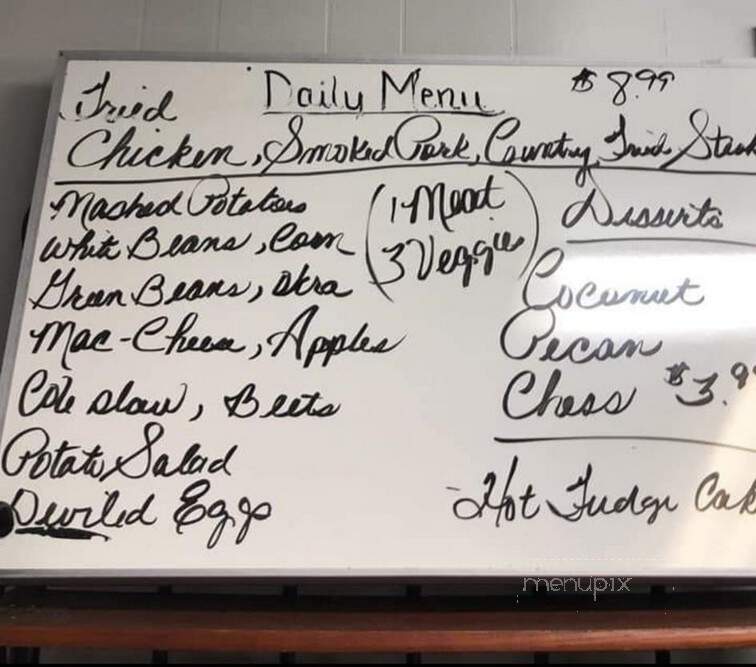 Daily Menu $8.99
Fried
Chicken, Smoked Pork, Country Fried Steak
Mashed Potatoes
White Beans, Corn
Green Beans, Okra
Mac-Cheese, Apples
Cole slaw, Beets
Potato Salad
Deviled Eggs
(1 Meat
3 Veggies)
Desserts
Coconut
Pecan
Chess $3.99
-Hot Fudge Cak
menupix